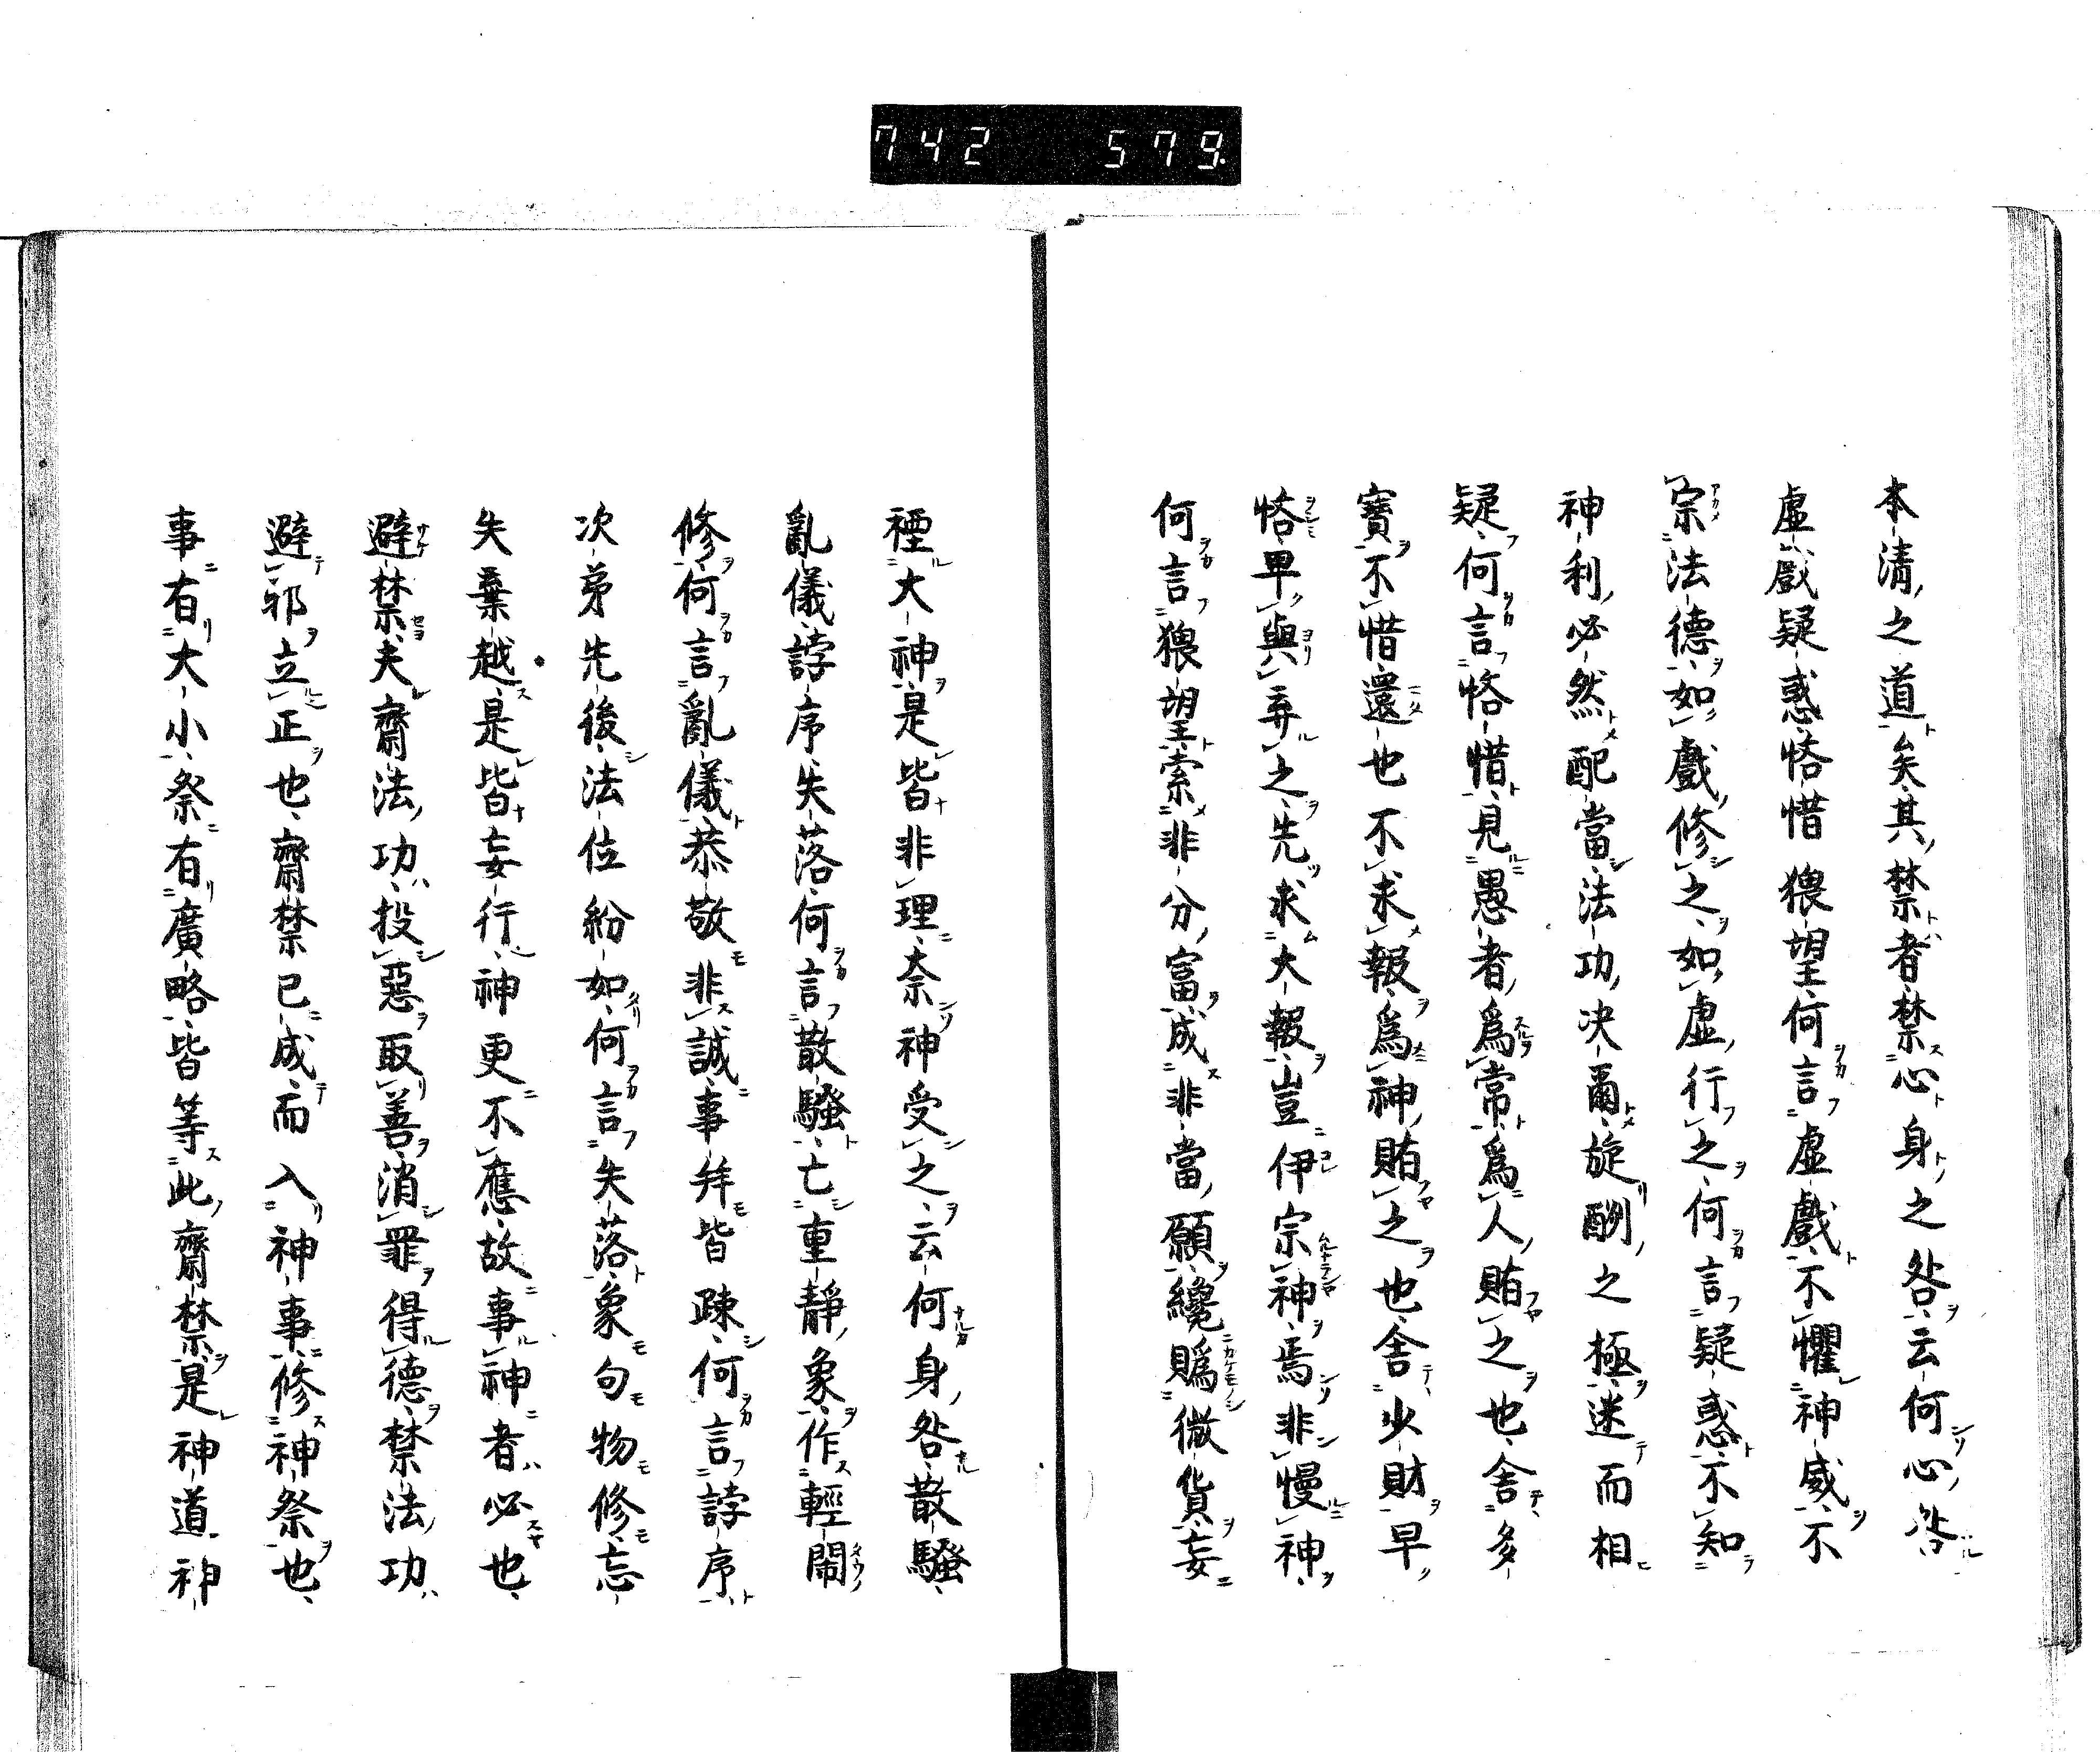 742 579
本清之道矣其禁者禁心身之咎云何心咎
虛戲疑惑悋惜猥望何言虛戲不懼神威不
宗法德如戲修之如虛行之何言疑惑不知
神利必然配當法功决爾旋酬之極迷而相
疑何言悋惜見愚者爲常爲人賄之也舍多
寶不惜還也不求報爲神賄之也舍少財早
悋早與弃之先求大報豈伊宗神焉非慢神
何言猥望索非分富成非當願纔賜微貨妄
禋大神是皆非理奈神受之云何身咎散騷
亂儀誖序失落何言散騷亡重靜象作輕閙
修何言亂儀恭敬非誠事并皆疎何言誖序
次弟先後法位紛如何言失落象句物修忘
失棄越是皆妄行神更不應故事神者必也
避禁夫齋法功投惡取善消罪得德禁法功
避邪立正也齋禁已成而入神事修神祭也
事有大小祭有廣略皆等此齋禁是神道神